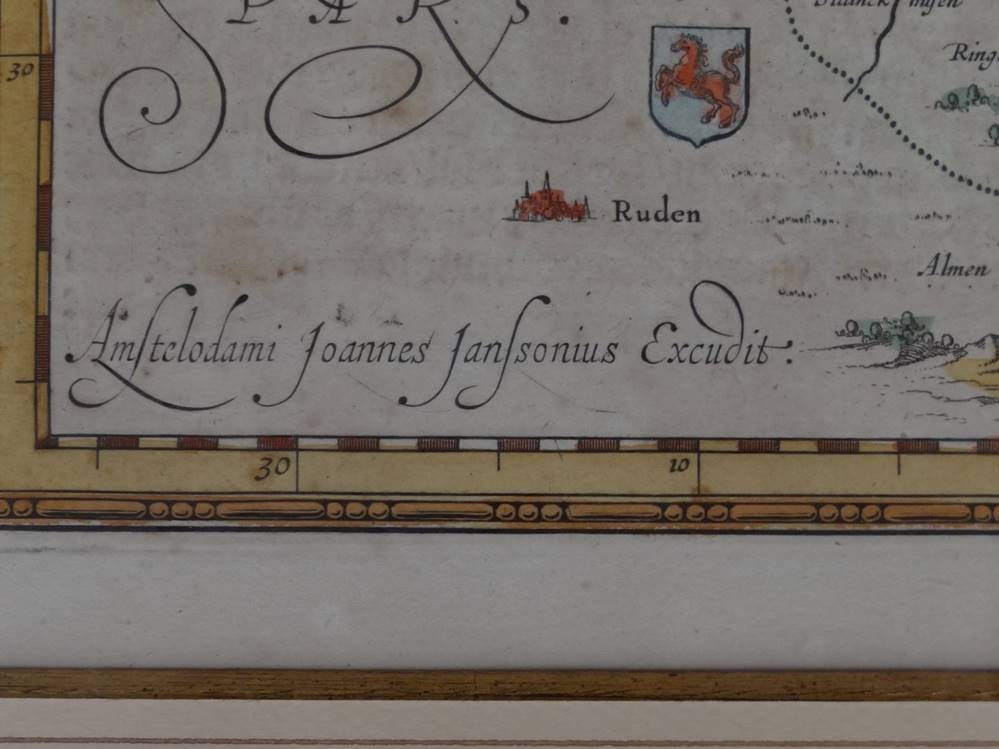 PARS.
30
Ruden
Almen
Amſtelodami Joannes Janſsonius Excudit.
30
10